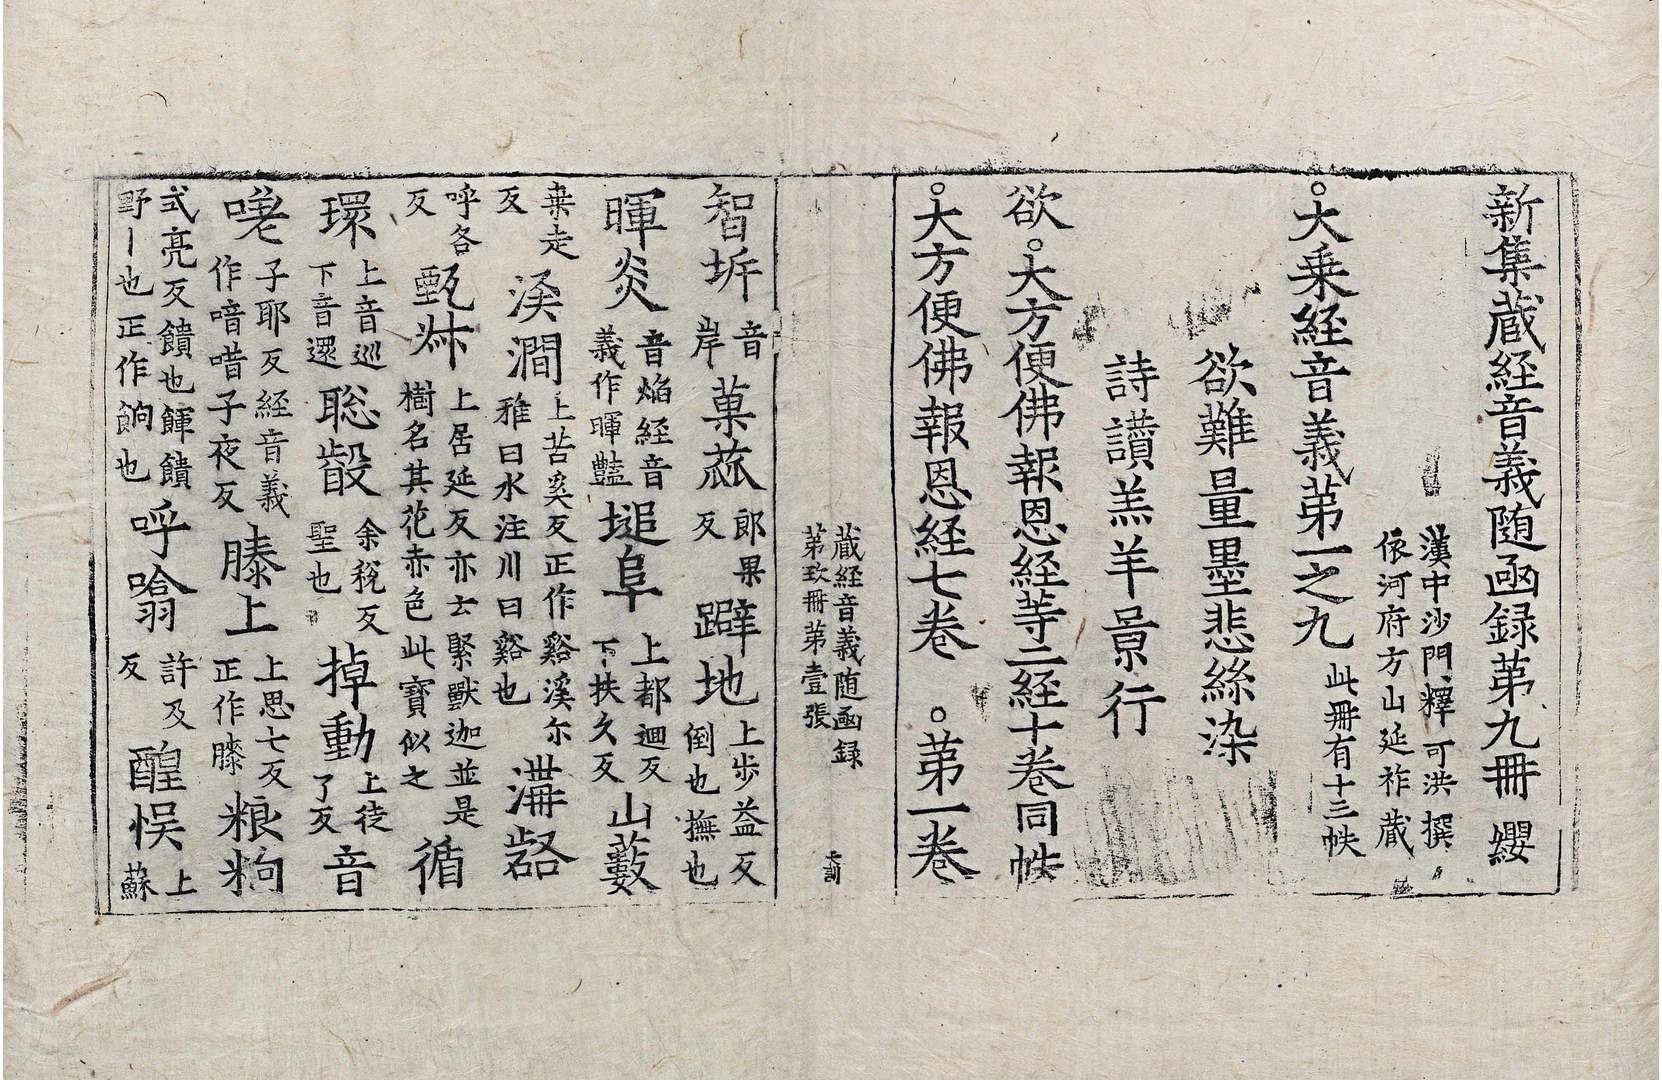 新集藏経音義随函録苐九冊 纓
漢中沙門釋可洪撰
依河府方山延祚藏
。大乗経音義苐一之九 此冊有十三帙
欲難量墨悲絲染
詩讃羔羊景行
欲。大方便佛報恩経等二経十卷同帙
。大方便佛報恩経七卷 。苐一卷
藏経音義随函録
苐玖冊苐壹張
智坼 音岸 菓蓏 郎果反 躃地 上步益反倒也撫也
暉炎 音焰経音義作暉豔 塠阜 上都迴反下扶久反 山藪
桒走反 渓澗 上苦奚反正作谿溪尔雅曰水注川曰谿也 溝
呼各反 甄叔 上居延反亦云緊獸迦並是樹名其花赤色此寶似之 循
環 上音巡下音還 聡叡 余稅反聖也 掉動 上徒了反 音
子耶反経音義作喑唶子夜反 膝上 上思七反正作膝 粮
式亮反饋也餫饋野丨也正作餉也 呼噏 許及反 醒悞 上蘇